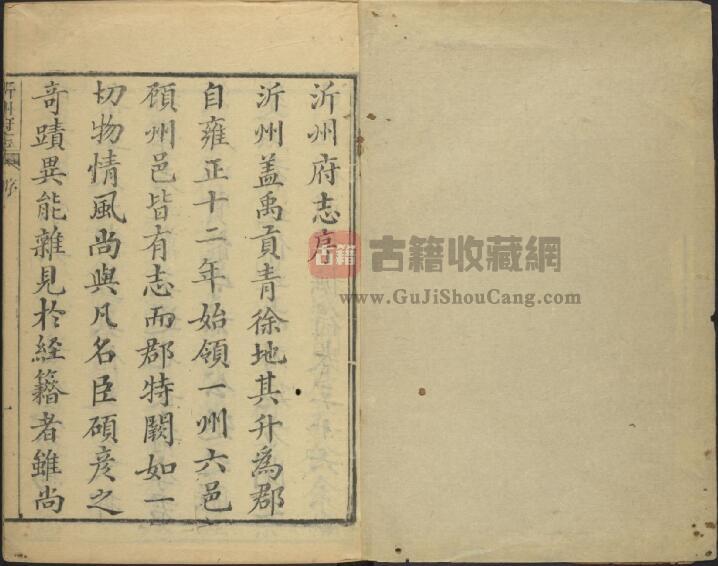 沂州府志序
沂州盖禹貢青徐地其升為郡
自雍正十二年始領一州六邑
顧州邑皆有志而郡特闕如一
切物情風尚與凡名臣碩彦之
奇蹟異能雜見於経籍者雖尚
沂州府志
序
一
古籍
古籍收藏網
www.GuJiShouCang.com